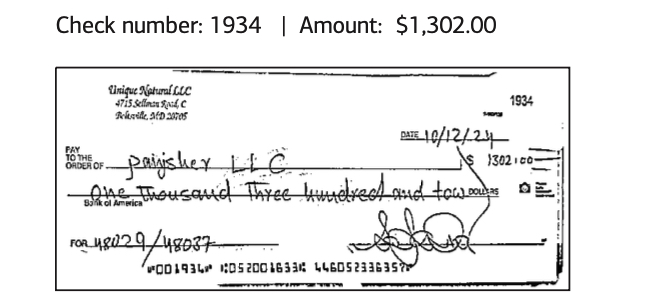 Check number: 1934 | Amount: $1,302.00
Unique Natural LLC
4715 Sellman Road, C
Beltsville, MD 20705
1934
DATE 10/12/24
PAY
TO THE
ORDER OF
LLC
$ 1302.00
One Thousand Three hundred and tow DOLLARS
Bank of America
FOR 48029/48037
⑈001934⑈ ⑆052001633⑆ 446052336357⑈